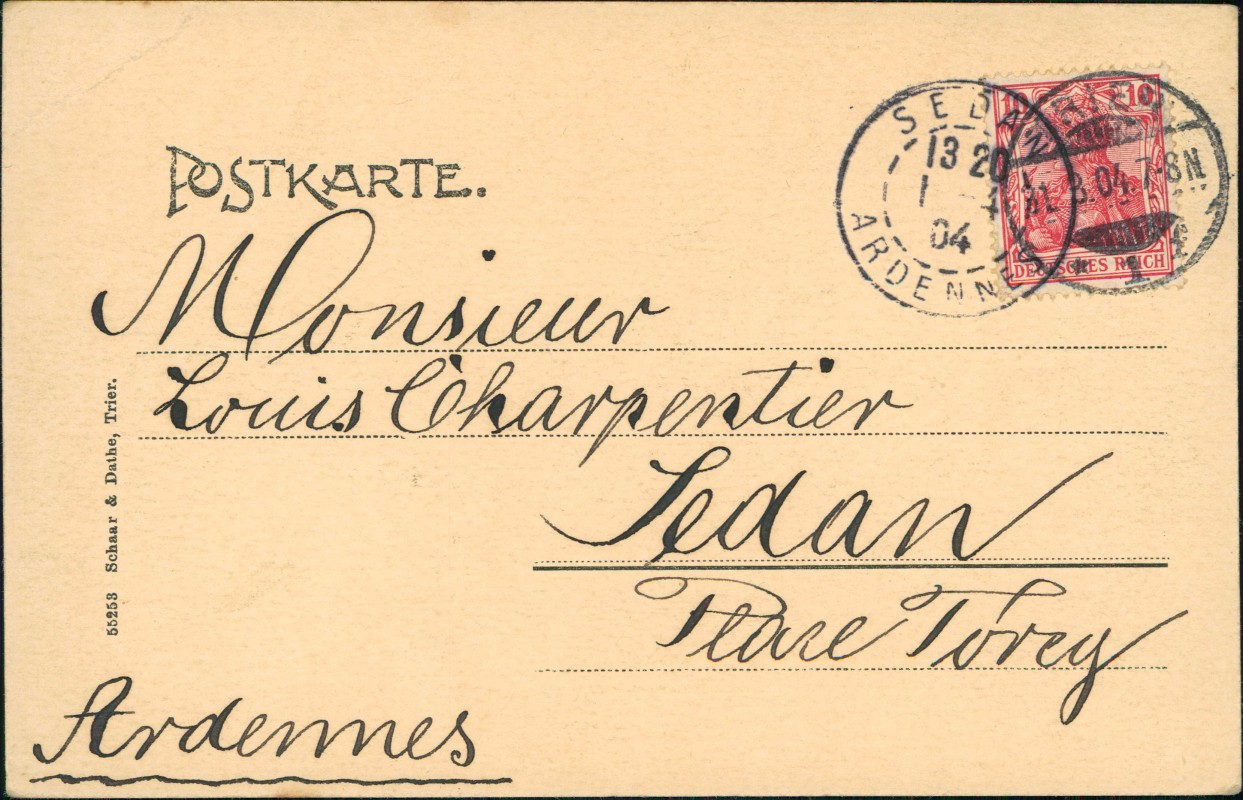 POSTKARTE.
10 10
DEUTSCHES REICH
SEDAN
13 20
04
ARDENNES
31.3.04. 7-8N
Monsieur
Louis Charpentier
Sedan
Place Torcy
Ardennes
55253 Schaar & Dathe, Trier.